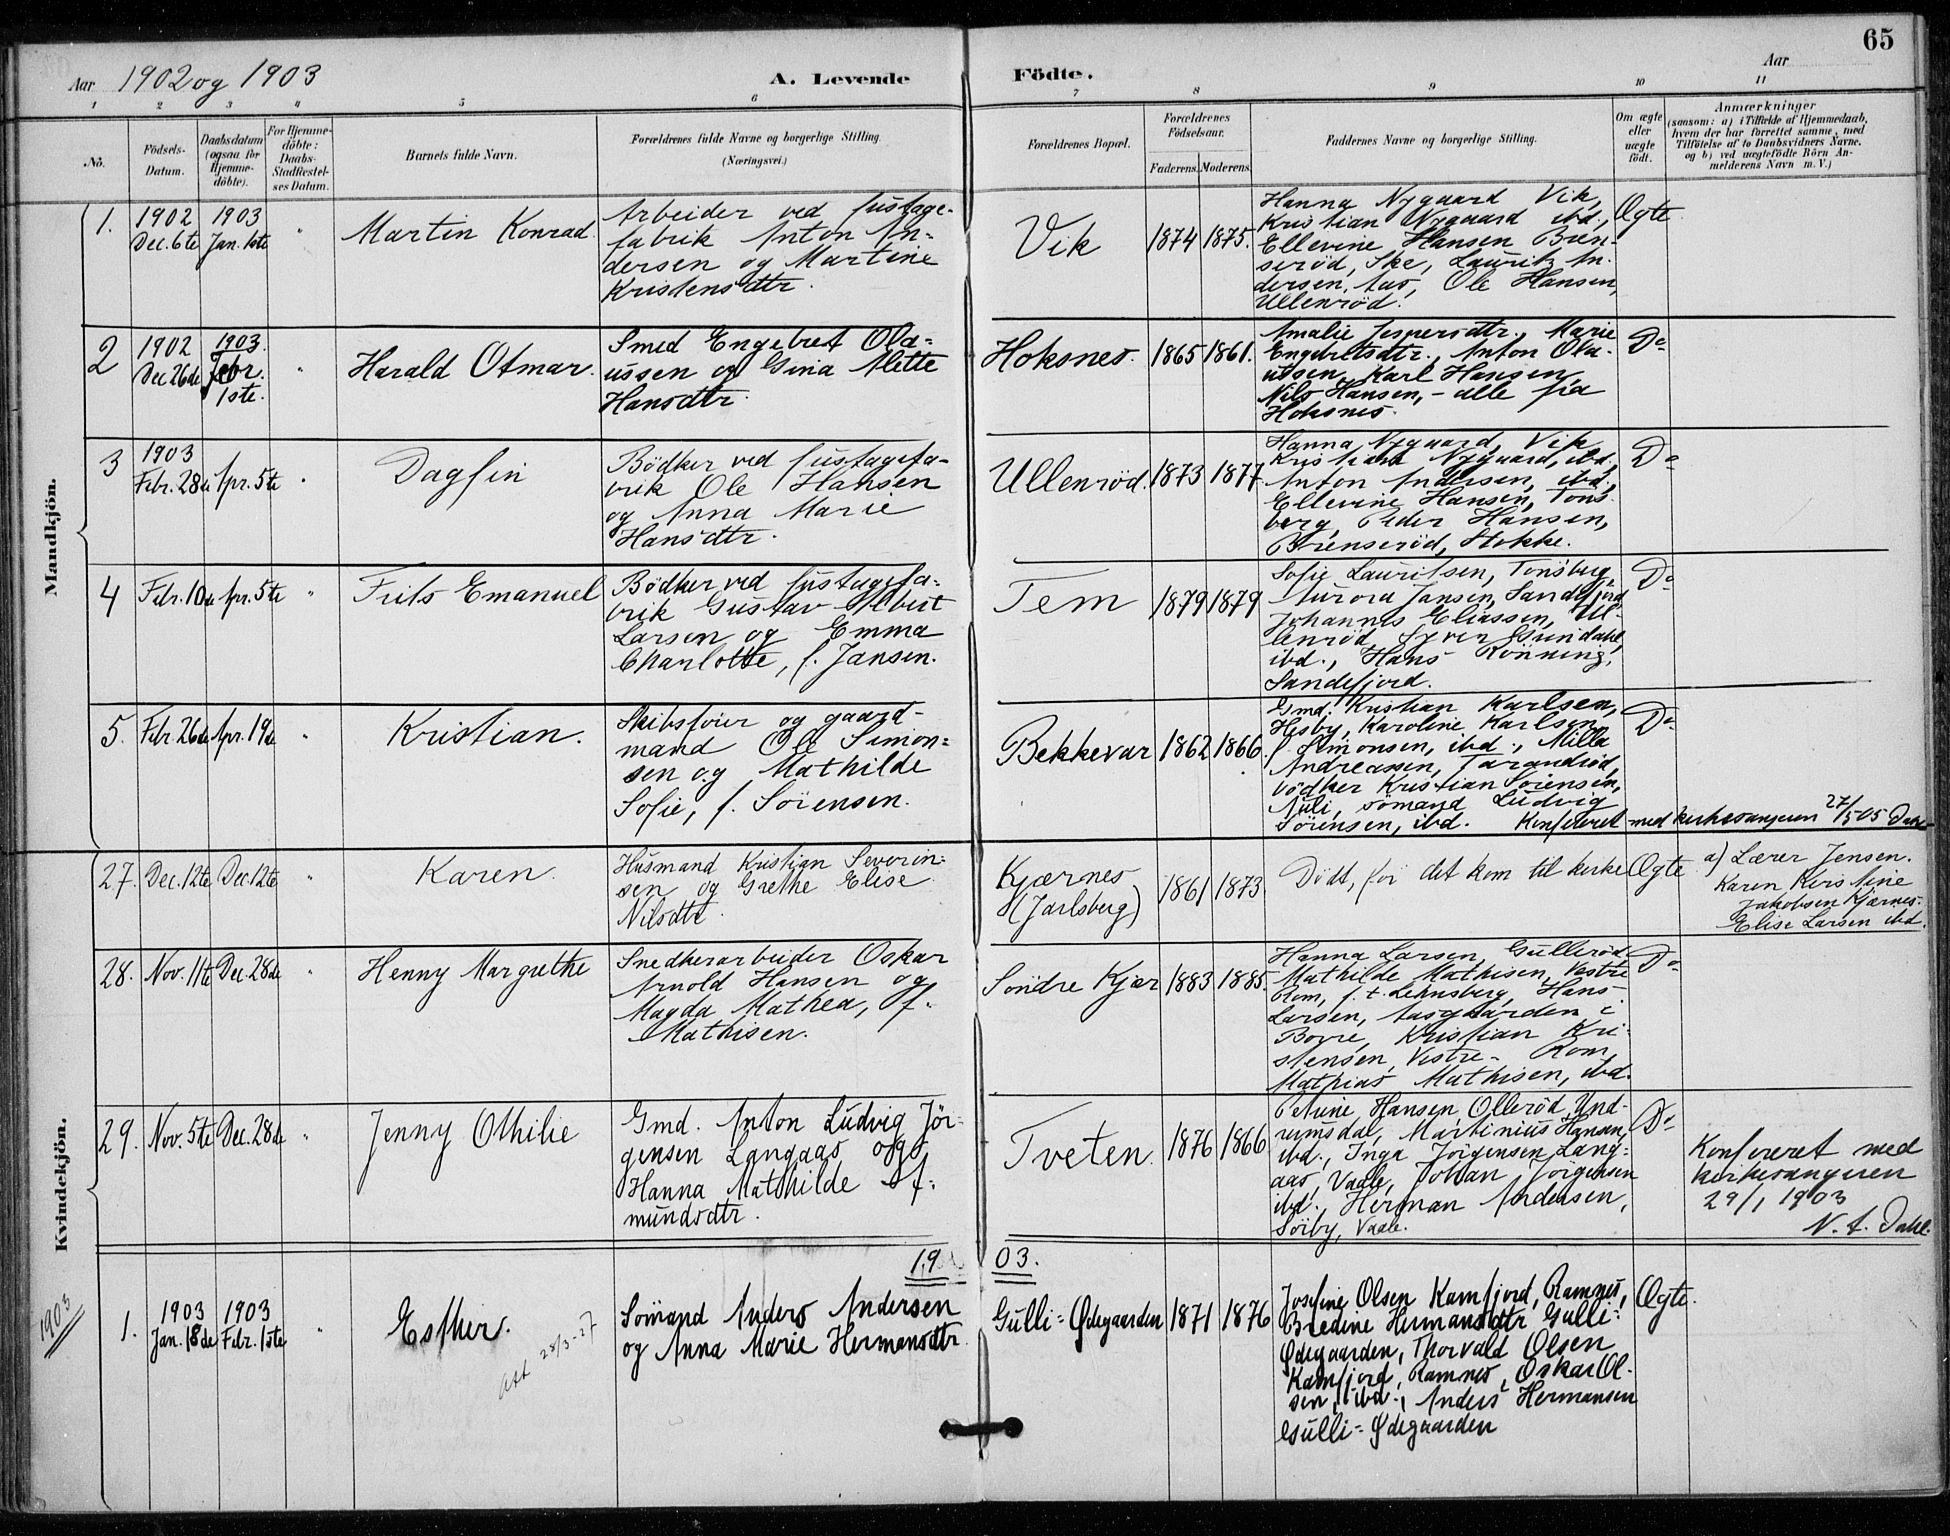 65
Aar 1902 og 1903
A. Levende Födte.
Aar
1 2 3 4 5 6 7 8 9 10 11
No.
Födsels-
Datum.
Daabsdatum
(ogsaa for
Hjemme-
döbte).
For Hjemme-
döbte:
Daabs-
Stadfæstel-
ses Datum.
Barnets fulde Navn.
Forældrenes fulde Navne og borgerlige Stilling.
(Næringsvei.)
Forældrenes Bopæl.
Forældrenes
Födselsaar.
Faderens. Moderens.
Faddernes Navne og borgerlige Stilling.
Om ægte
eller
uægte
födt.
Anmærkninger
(saasom: a) i Tilfælde af Hjemmedaab,
hvem der har forrettet samme, med
Tilföielse af to Daabsvidners Navne.
og b) ved uægtefödte Börn An-
melderens Navn m. V.)
Mandkjön.
1.
1902
Dec. 6te
1903
Jan. 1ste
"
Martin Konrad.
Arbeider ved fustage-
fabrik Anton An-
dersen og Martine
Kristensdtr.
Vik
1874
1875.
Hanna Nygaard Vik,
Kristian Nygaard ibd.,
Ellevine Hansen Bræn-
serød, Ske, Lauritz An-
dersen, Aas, Ole Hansen,
Ullenrød.
Ægte
2
1902
Dec. 26de
1903.
Febr.
1ste.
"
Harald Otmar.
Smed Engebret Ola-
ussen og Gina Mette
Hansdtr.
Hoksnes.
1865
1861.
Amalie Jespersdtr., Marie
Engebretsdtr., Anton Ola-
ussen, Karl Hansen,
Nils Hansen, - alle fra
Hoksnes.
Do
3
1903
Febr. 28de
Apr. 5te
"
Dagfin
Bödker ved fustagefa-
brik Ole Hansen
og Anna Marie
Hansdtr.
Ullenrød.
1873
1877
Hanna Nygaard, Vik
Kristian Nygaard, ibd.,
Anton Andersen, ibd.,
Ellevine Hansen, Tøns-
berg, Peder Hansen,
Brenserød, Stokke.
Do
4
Febr. 10de
Apr. 5te
"
Frits Emanuel
Bödker ved fustagefa-
brik Gustav Albert
Larsen og Emma
Charlotte, f. Jansen.
Tem
1879
1879
Sofie Lauritsen, Tønsberg,
Aurora Jansen, Sandefjord,
Johannes Eliassen, Ul-
lenrød, Syver Gundahl,
ibd., Hans Rönning,
Sandefjord.
Do
5.
Febr. 26de
Apr. 19de
"
Kristian.
Skibsfører og gaard-
mand Ole Simon-
sen og Mathilde
Sofie, f. Sörensen.
Bekkevar
1862
1866.
Gmd. Kristian Karlsen,
Hesby, Karoline Karlsen,
f. Simonsen, ibd., Milla
Andreassen, Tarandrød,
bödker Kristian Sörensen,
Auli, sömand Ludvig
Sörensen, ibd.
Do
Konfereret med kirkesangeren 27/5 05 Dahl
Kvindekjön.
27.
Dec. 12te
Dec. 12te
"
Karen.
Husmand Kristian Severin-
sen og Grethe Elise
Nilsdtr.
Kjærnes
(Jarlsberg)
1861
1873
Dödt, för det kom til kirke
Ægte
a) Lærer Jensen.
Karen Kristine
Jakobsen Kjærnes.
Elise Larsen ibd.
28.
Nov. 11te
Dec. 28de
"
Henny Margrethe
Snedkerarbeider Oskar
Arnold Hansen og
Magda Mathea, f.
Mathisen.
Söndre Kjær
1883
1885.
Hanna Larsen, Gullerød
Mathilde Mathisen, Vestre
Rom, f. t. Lehnsberg, Hans
Larsen, Aasgaarden i
Borre, Kristian Kri-
stensen, Vestre- Rom,
Mathias Mathisen, ibd.
Do
29.
Nov. 5te
Dec. 28de
"
Jenny Othilie
Gmd. Anton Ludvig Jör-
gensen Langaas og
Hanna Mathilde Af-
mundsdtr.
Tveten.
1876
1866
Petrine Hansen Ollerød, Und-
rumsdal, Martinius Hansen,
ibd., Inga Jörgensen Lang-
aas, Vaale, Johan Jörgensen
ibd., Herman Andersen,
Söiby, Vaale.
Do
Konfereret med
kirkesangeren
29/1 1903
N. A. Dahl.
1903.
1903
1.
1903
Jan. 18de
1903
Febr. 1ste
"
Esther.
Att 28/3-27
Sömand Anders Andersen
og Anna Marie Hermansdtr.
Gulli-Ødegaarden
1871
1876
Josefine Olsen Kamfjord, Ramnes,
Bredine Hermansdtr Gulli-
Ødegaarden, Thorvald Olsen
Kamfjord, Ramnes, Oskar Ol-
sen, ibd., Anders Hermansen
Gulli-Ødegaarden
Ægte.